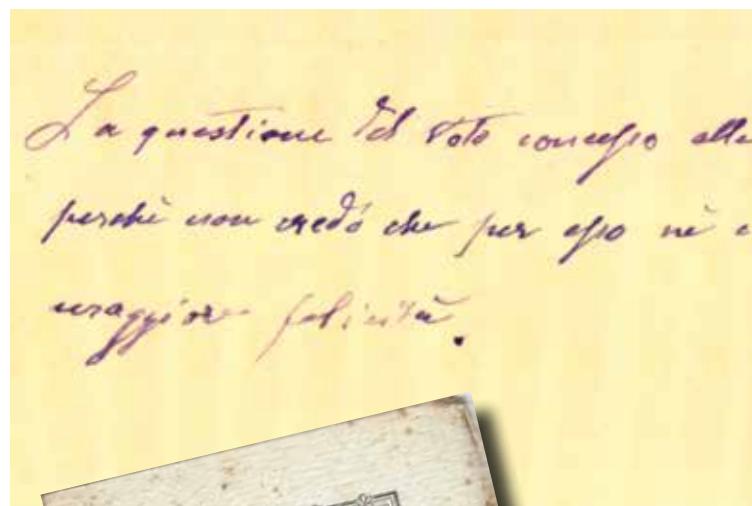 La questione del voto concesso alle
perchè non credo che per esso nè
maggiore felicità.